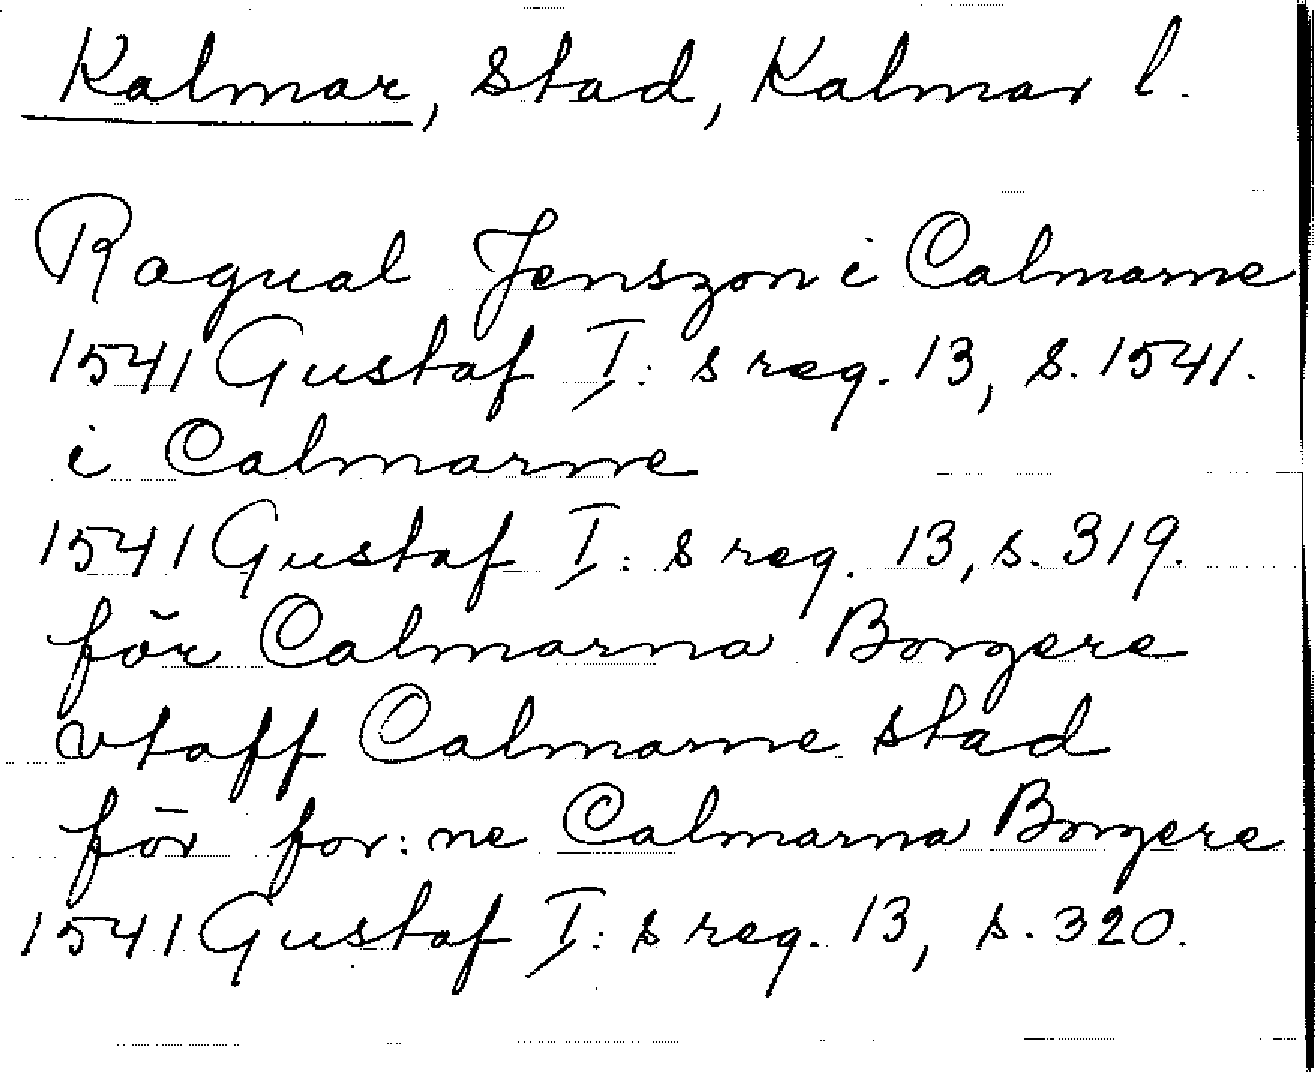 Kalmar, stad, Kalmar l.
Ragual Jenszon i Calmarne
1541 Gustaf I:s reg. 13, s. 1541.
i Calmarne
1541 Gustaf I:s reg. 13, s. 319.
för Calmarna Borgere
vtaff Calmarne stad
för for:ne Calmarna Borgere
1541 Gustaf I:s reg. 13, s. 320.